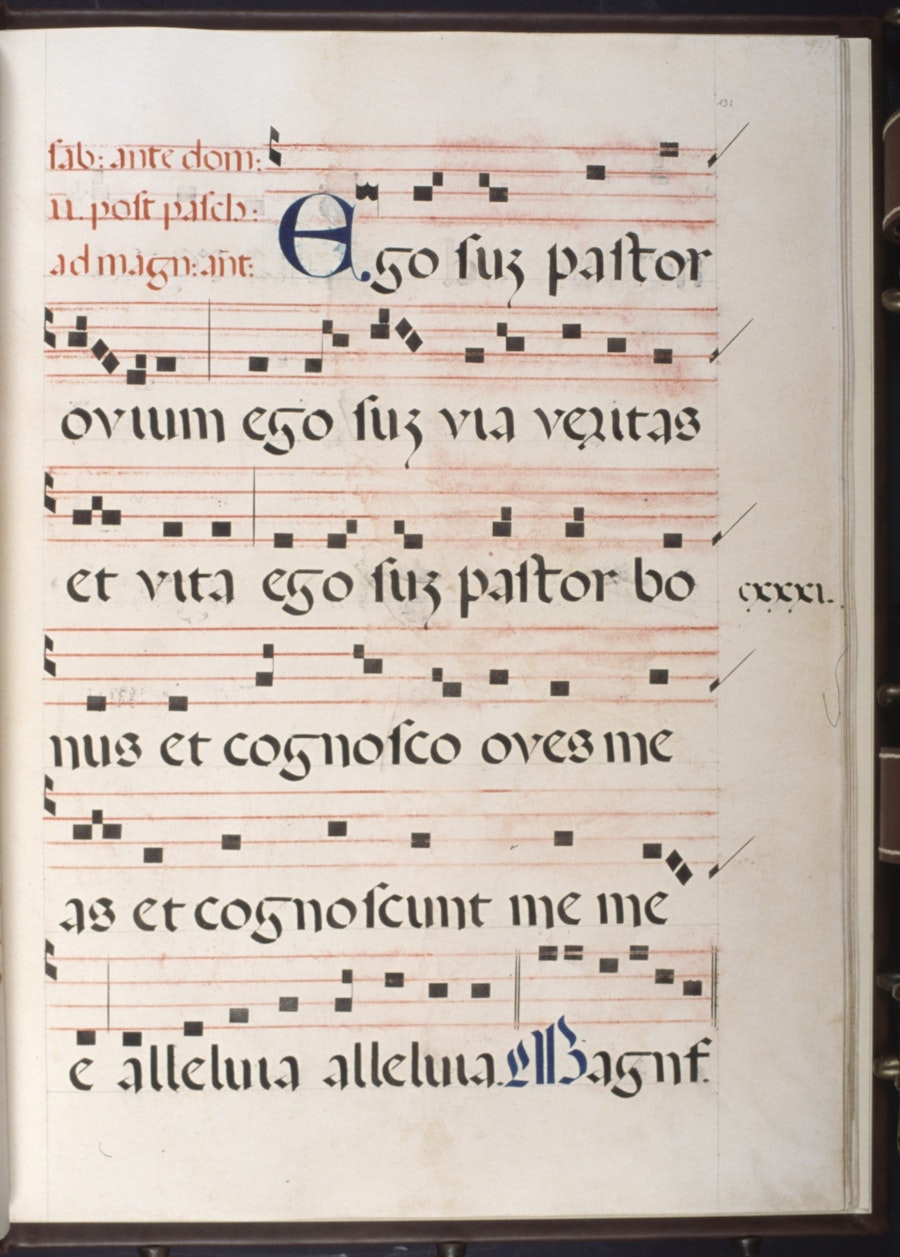 131
sab: ante dom:
ii. post pasch:
ad magn: ant:
Ego suȝ pastor
ovium ego suȝ via veritas
et vita ego suȝ pastor bo
cxxxi.
nus et cognosco oves me
as et cognoscunt me me
e alleluia alleluia. Magnf.